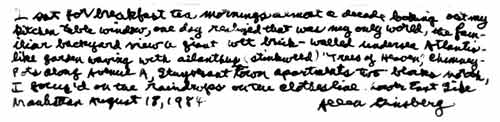 I sat for breakfast tea mornings almost a decade looking out my
kitchen table window, one day realized that was my only world, the fam-
iliar backyard view a giant wet brick-walled undersea Atlantis-
like garden waving with ailanthus (stinkweed) "Trees of Heaven," chimney-
pots along Avenue A, Stuyvesant town apartments two blocks north,
I focus'd on the raindrops on the clothesline. Lower East Side
Manhattan August 18, 1984
Allen Ginsberg